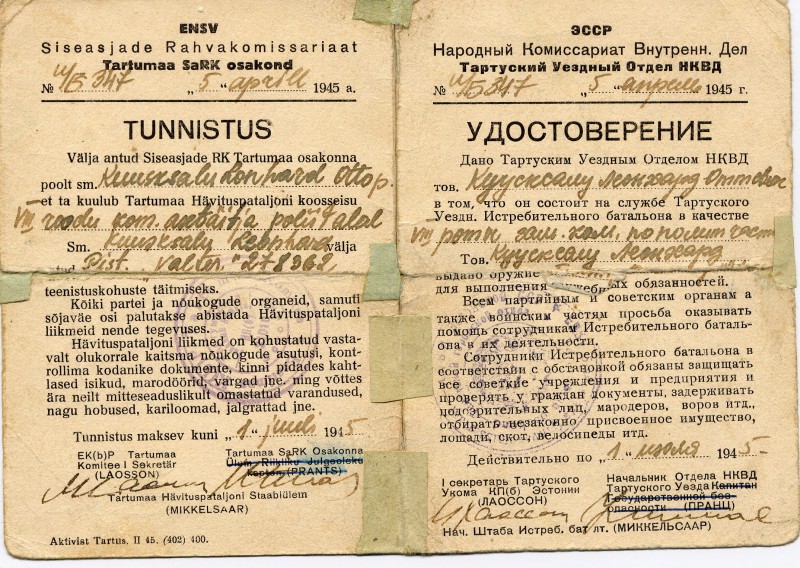 ENSV
Siseasjade Rahvakomissariaat
Tartumaa SaRK osakond
№ II/5 347 „5" aprill 1945 a.
TUNNISTUS
Välja antud Siseasjade RK Tartumaa osakonna
poolt sm. Kuusksalu Leonhard Otto p.
et ta kuulub Tartumaa Hävituspataljoni koosseisu
VIII roodu kom. asetäitja polit. alal
Sm. Kuusksalu Leonhard välja
tud Püst. "Valter" 278362
teenistuskohuste täitmiseks.
Kõiki partei ja nõukogude organeid, samuti
sõjaväe osi palutakse abistada Hävituspataljoni
liikmeid nende tegevuses.
Hävituspataljoni liikmed on kohustatud vasta-
valt olukorrale kaitsma nõukogude asutusi, kont-
rollima kodanike dokumente, kinni pidades kaht-
lased isikud, marodöörid, vargad jne. ning võttes
ära neilt mitteseaduslikult omastatud varandused,
nagu hobused, kariloomad, jalgrattad jne.
Tunnistus maksev kuni „1" juuli 1945
EK(b)P Tartumaa
Komitee I Sekretär
(LAOSSON)
Tartumaa SaRK Osakonna
Ülem Riikliku Julgeoleku
kapten (PRANTS)
Tartumaa Hävituspataljoni Staabiületn
(MIKKELSAAR)
Aktivist Tartus, II 45. (402) 400.
ЭССР
Народный Комиссариат Внутренн. Дел
Тартуский Уездный Отдел НКВД
№ II/5 347 „5" апреля 1945 г.
УДОСТОВЕРЕНИЕ
Дано Тартуским Уездным Отделом НКВД
тов. Куусксалу Леонхард Оттович
в том, что он состоит на службе Тартуского
Уездн. Истребительного батальона в качестве
VIII роты зам. ком. по полит части
Тов. Куусксалу Леонхард
выдано оружие
для выполнения служебных обязанностей.
Всем партийным и советским органам а
также воинским частям просьба оказывать
помощь сотрудникам Истребительного баталь-
она в их деятельности.
Сотрудники Истребительного батальона в
соответствии с обстановкой обязаны защищать
все советкие учреждения и предприятия и
проверять у граждан документы, задерживать
подозрительных лиц, мародеров, воров итд.,
отбирать незаконно присвоенное имущество,
лошади, скот, велосипеды итд.
Действительно по „1" июля 1945
I секретарь Тартуского
Укома КП(б) Эстонии
(ЛАОССОН)
Начальник Отдела НКВД
Тартуского Уезда Капитан
Государственной без-
опасности (ПРАНЦ)
Нач. Штаба Истреб. бат лт. (МИККЕЛЬСААР)